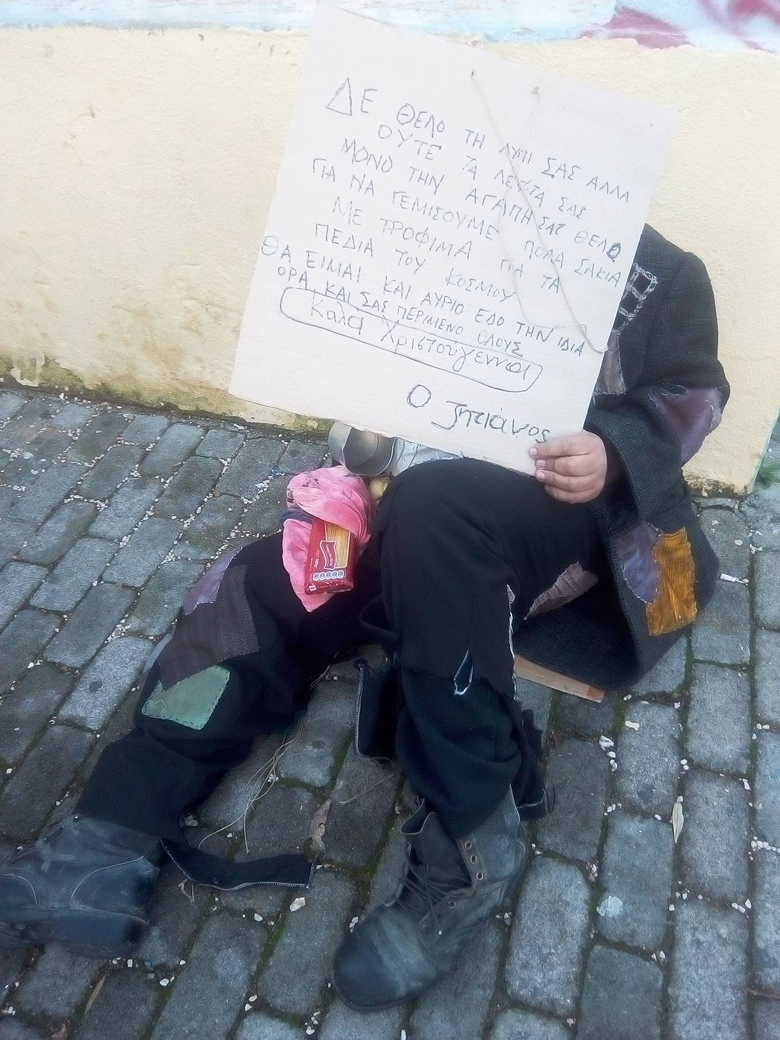 ΔΕ ΘΕΛΟ ΤΗ ΛΥΠΙ ΣΑΣ ΑΛΛΑ
ΟΥΤΕ ΤΑ ΛΕΥΤΑ ΣΑΣ
ΜΟΝΟ ΤΗΝ ΑΓΑΠΗ ΣΑΣ ΘΕΛΟ
ΓΙΑ ΝΑ ΓΕΜΙΣΟΥΜΕ ΠΟΛΑ ΣΑΚΙΑ
ΜΕ ΤΡΟΦΙΜΑ ΓΙΑ ΤΑ
ΠΕΔΙΑ ΤΟΥ ΚΟΣΜΟΥ
ΘΑ ΕΙΜΑΙ ΚΑΙ ΑΥΡΙΟ ΕΔΟ ΤΗΝ ΙΔΙΑ
ΟΡΑ ΚΑΙ ΣΑΣ ΠΕΡΙΜΕΝΟ ΟΛΟΥΣ
Καλα Χριστουγεννα
Ο Ζητιανος